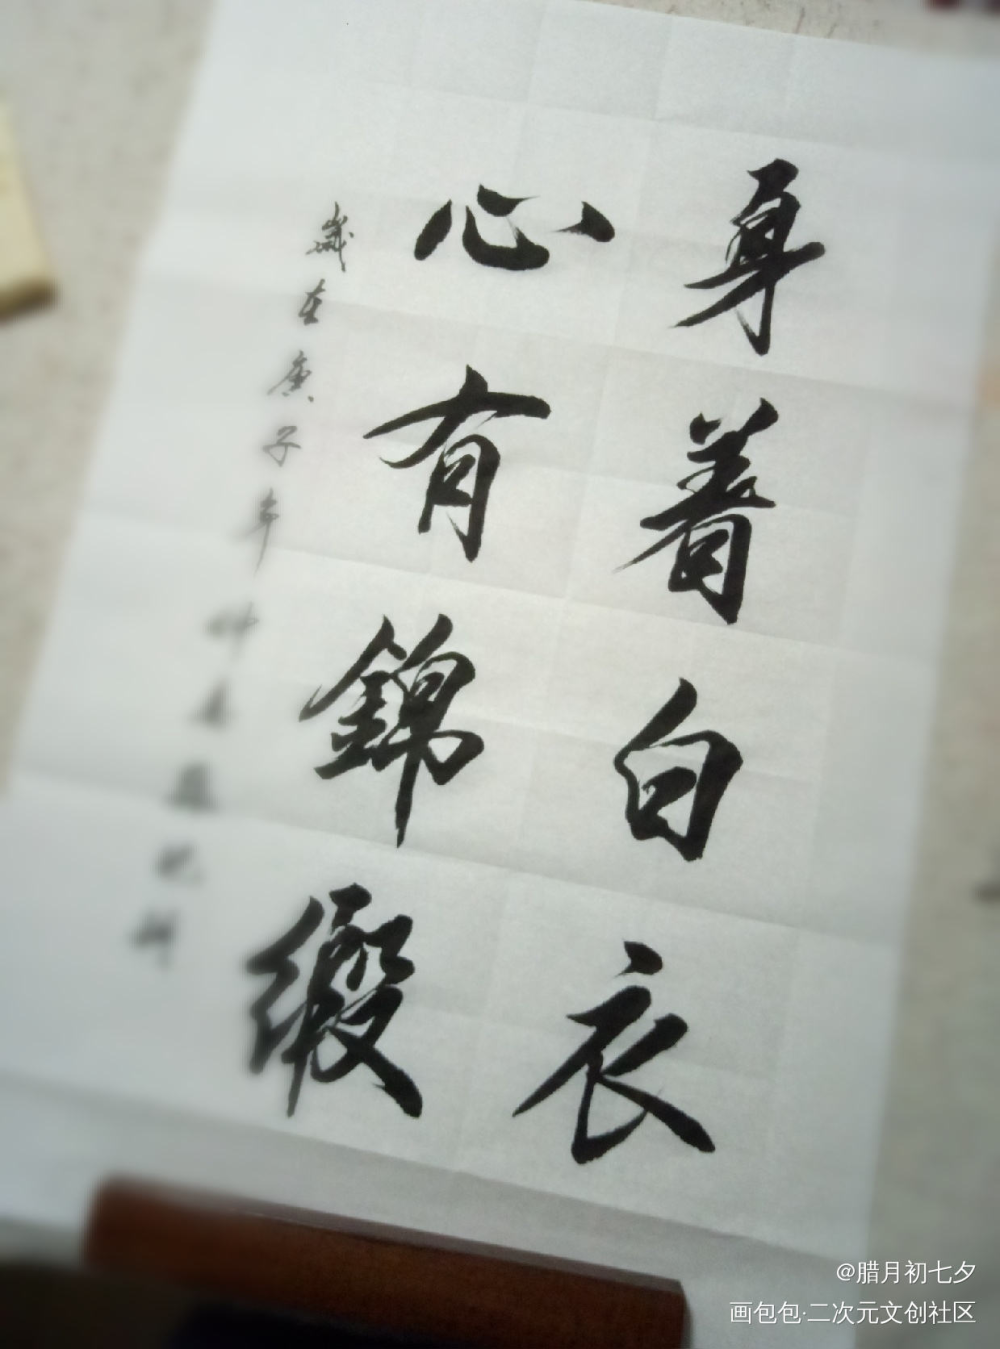 身着白衣
心有錦緞
歲在庚子年仲春
@腊月初七夕
画包包·二次元文创社区